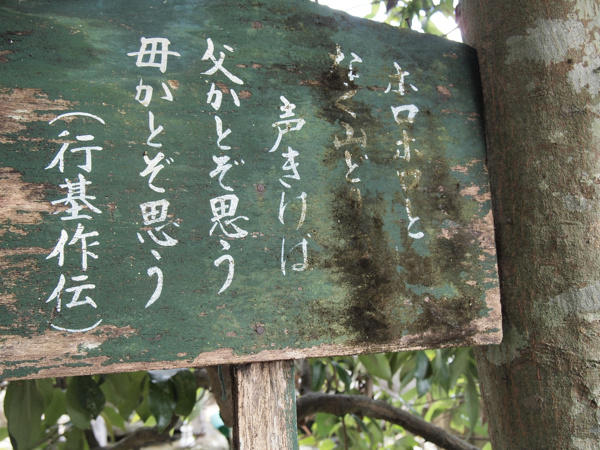 ホロホロと
なく山どり
声きけは
父かとぞ思う
母かとぞ思う
(行基作伝)